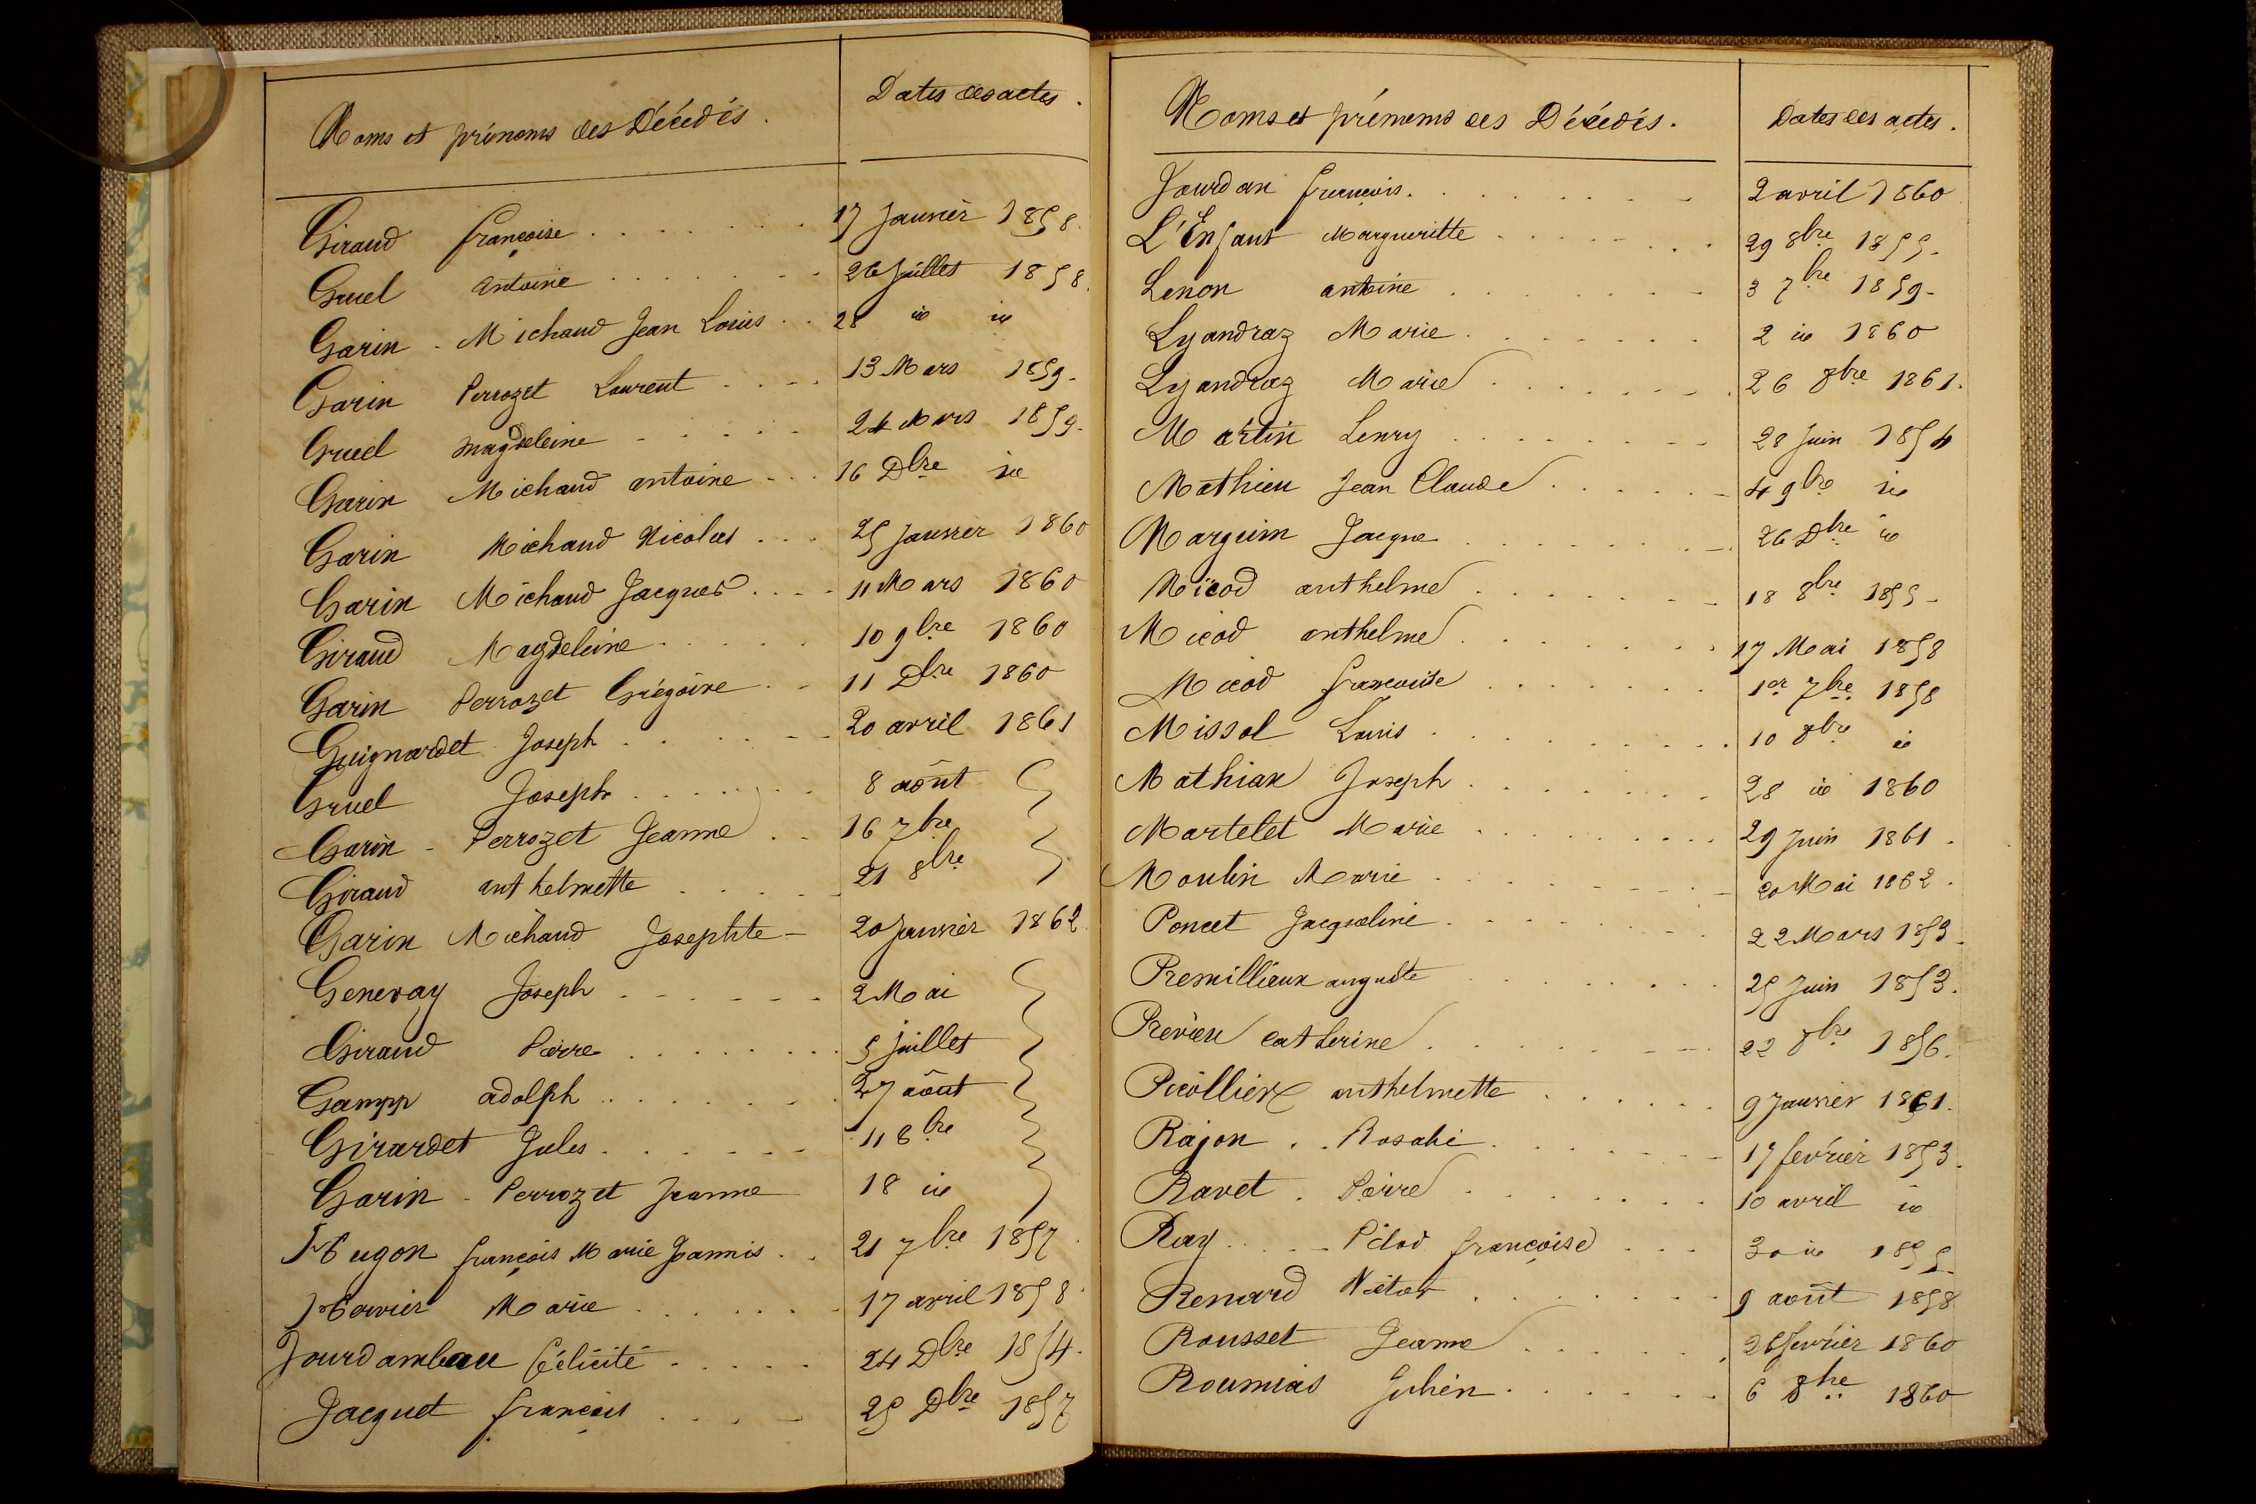 Noms et prénoms des Décédés.
Dates des actes.
Giraud françoise 17 Janvier 1858.
Gruel antoine 26 Juillet 1858.
Garin - Michaud Jean Louis 28 id id
Garin Perrozet Laurent 13 Mars 1859.
Gruel magdeleine 24 Mars 1859.
Garin Michaud antoine 16 Dbre id
Garin Michaud Nicolas 25 Janvier 1860
Garin Michaud Jacques 11 Mars 1860
Giraud Magdeleine 10 9bre 1860
Garin Perrozet Grégoire 11 Dbre 1860
Guignardet Joseph 20 avril 1861
Gruel Joseph 8 août
Garin - Perrozet Jeanne 16 7bre
Giraud anthelmette 21 8bre
Garin Michaud Josephte 20 Janvier 1862
Genevay Joseph 2 Mai
Giraud Pierre 5 juillet
Gampp adolph 27 août
Girardet Jules 11 8bre
Garin - Perrozet Jeanne 18 id
Hugon françois Marie Joannis 21 7bre 1857
Marie 17 avril 1858
Jourdambeau félicité 24 Dbre 1854.
Jacquet françois 25 Dbre 1857
Noms et prénoms des Décédés.
Dates des actes.
Jourdan françois. 2 avril 1860
L'Enfant Margueritte 29 8bre 1855.
Lenon antoine 3 7bre 1859.
Lyandraz Marie 2 id 1860
Lyandraz Marie 26 8bre 1861.
Martin Henry 28 Juin 1854
Mathieu Jean Claude 4 9bre id
Marguin Jacque 26 Dbre id
Micod anthelme 18 8bre 1855
Micod anthelme 17 Mai 1858
Micod françoise 1er 7bre 1858
Missol Louis 10 8bre id
Mathian Joseph 28 id 1860
Martelet Marie 29 Juin 1861.
Moulin Marie 20 Mai 1862.
Poncet Jacqueline 22 Mars 1853.
Premillieux auguste 25 Juin 1853.
Previeu catherine 22 8bre 1856.
Picollier anthelmette 9 Janvier 1861.
Rajon Rosalie 17 février 1853.
Ravet Pierre 10 avril id
Ray Pélod françoise 30 id 1855
Renard Victor 9 août 1858
Rousset Jeanne 26 février 1860
Roumias Julien 6 8bre 1860